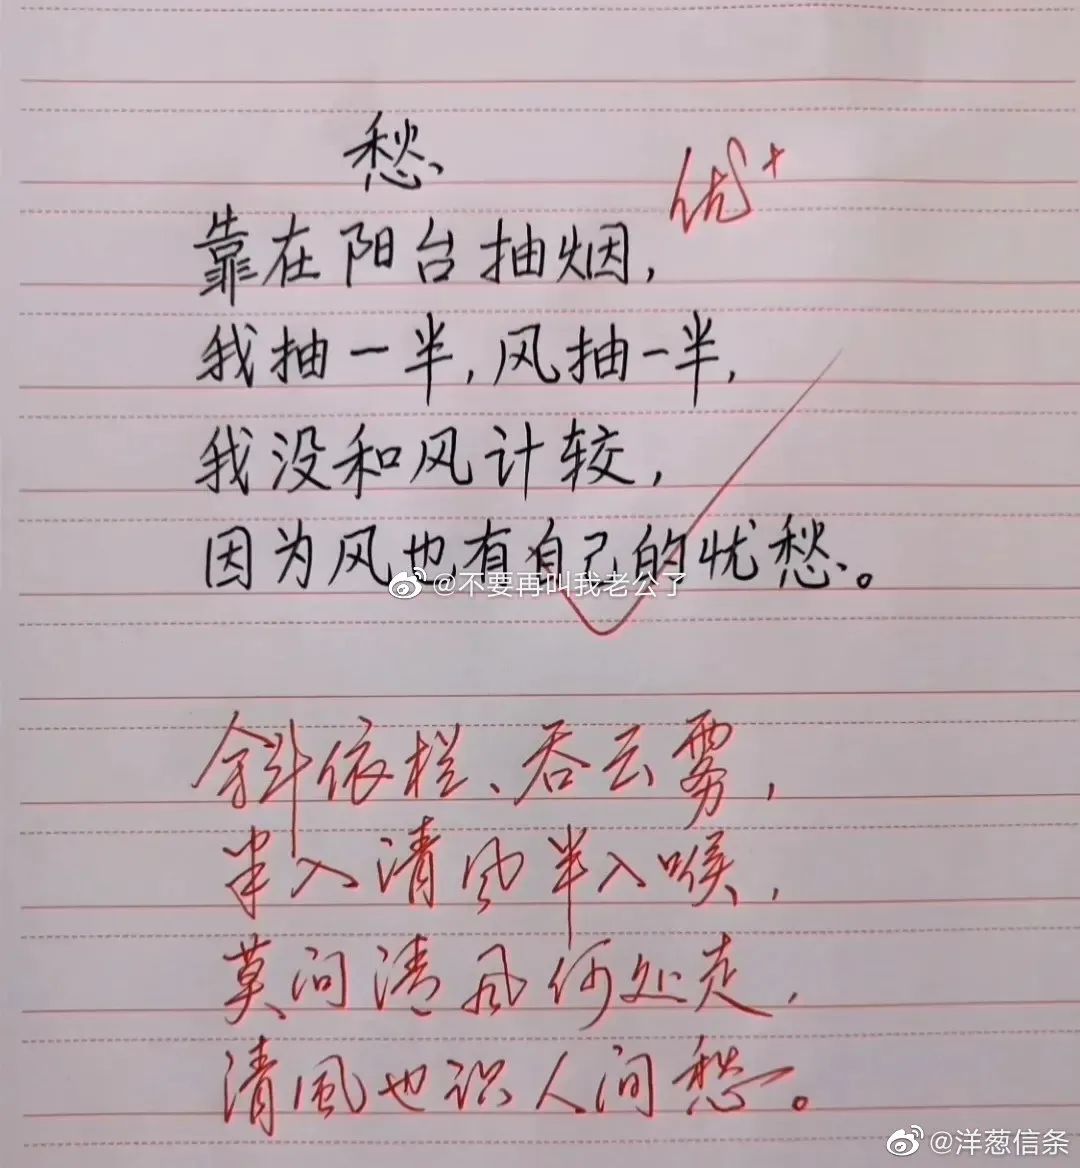 愁
优+
靠在阳台抽烟，
我抽一半，风抽一半，
我没和风计较，
因为风也有自己的忧愁。
@不要再叫我老公了
斜依栏、吞云雾，
半入清风半入喉，
莫问清风何处走，
清風也识人间愁。
@洋葱信条